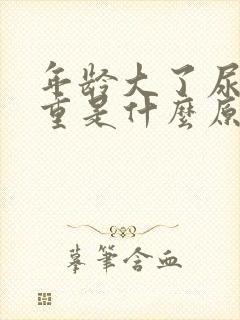 年龄大了尿
重是什麼原
摹筆含血